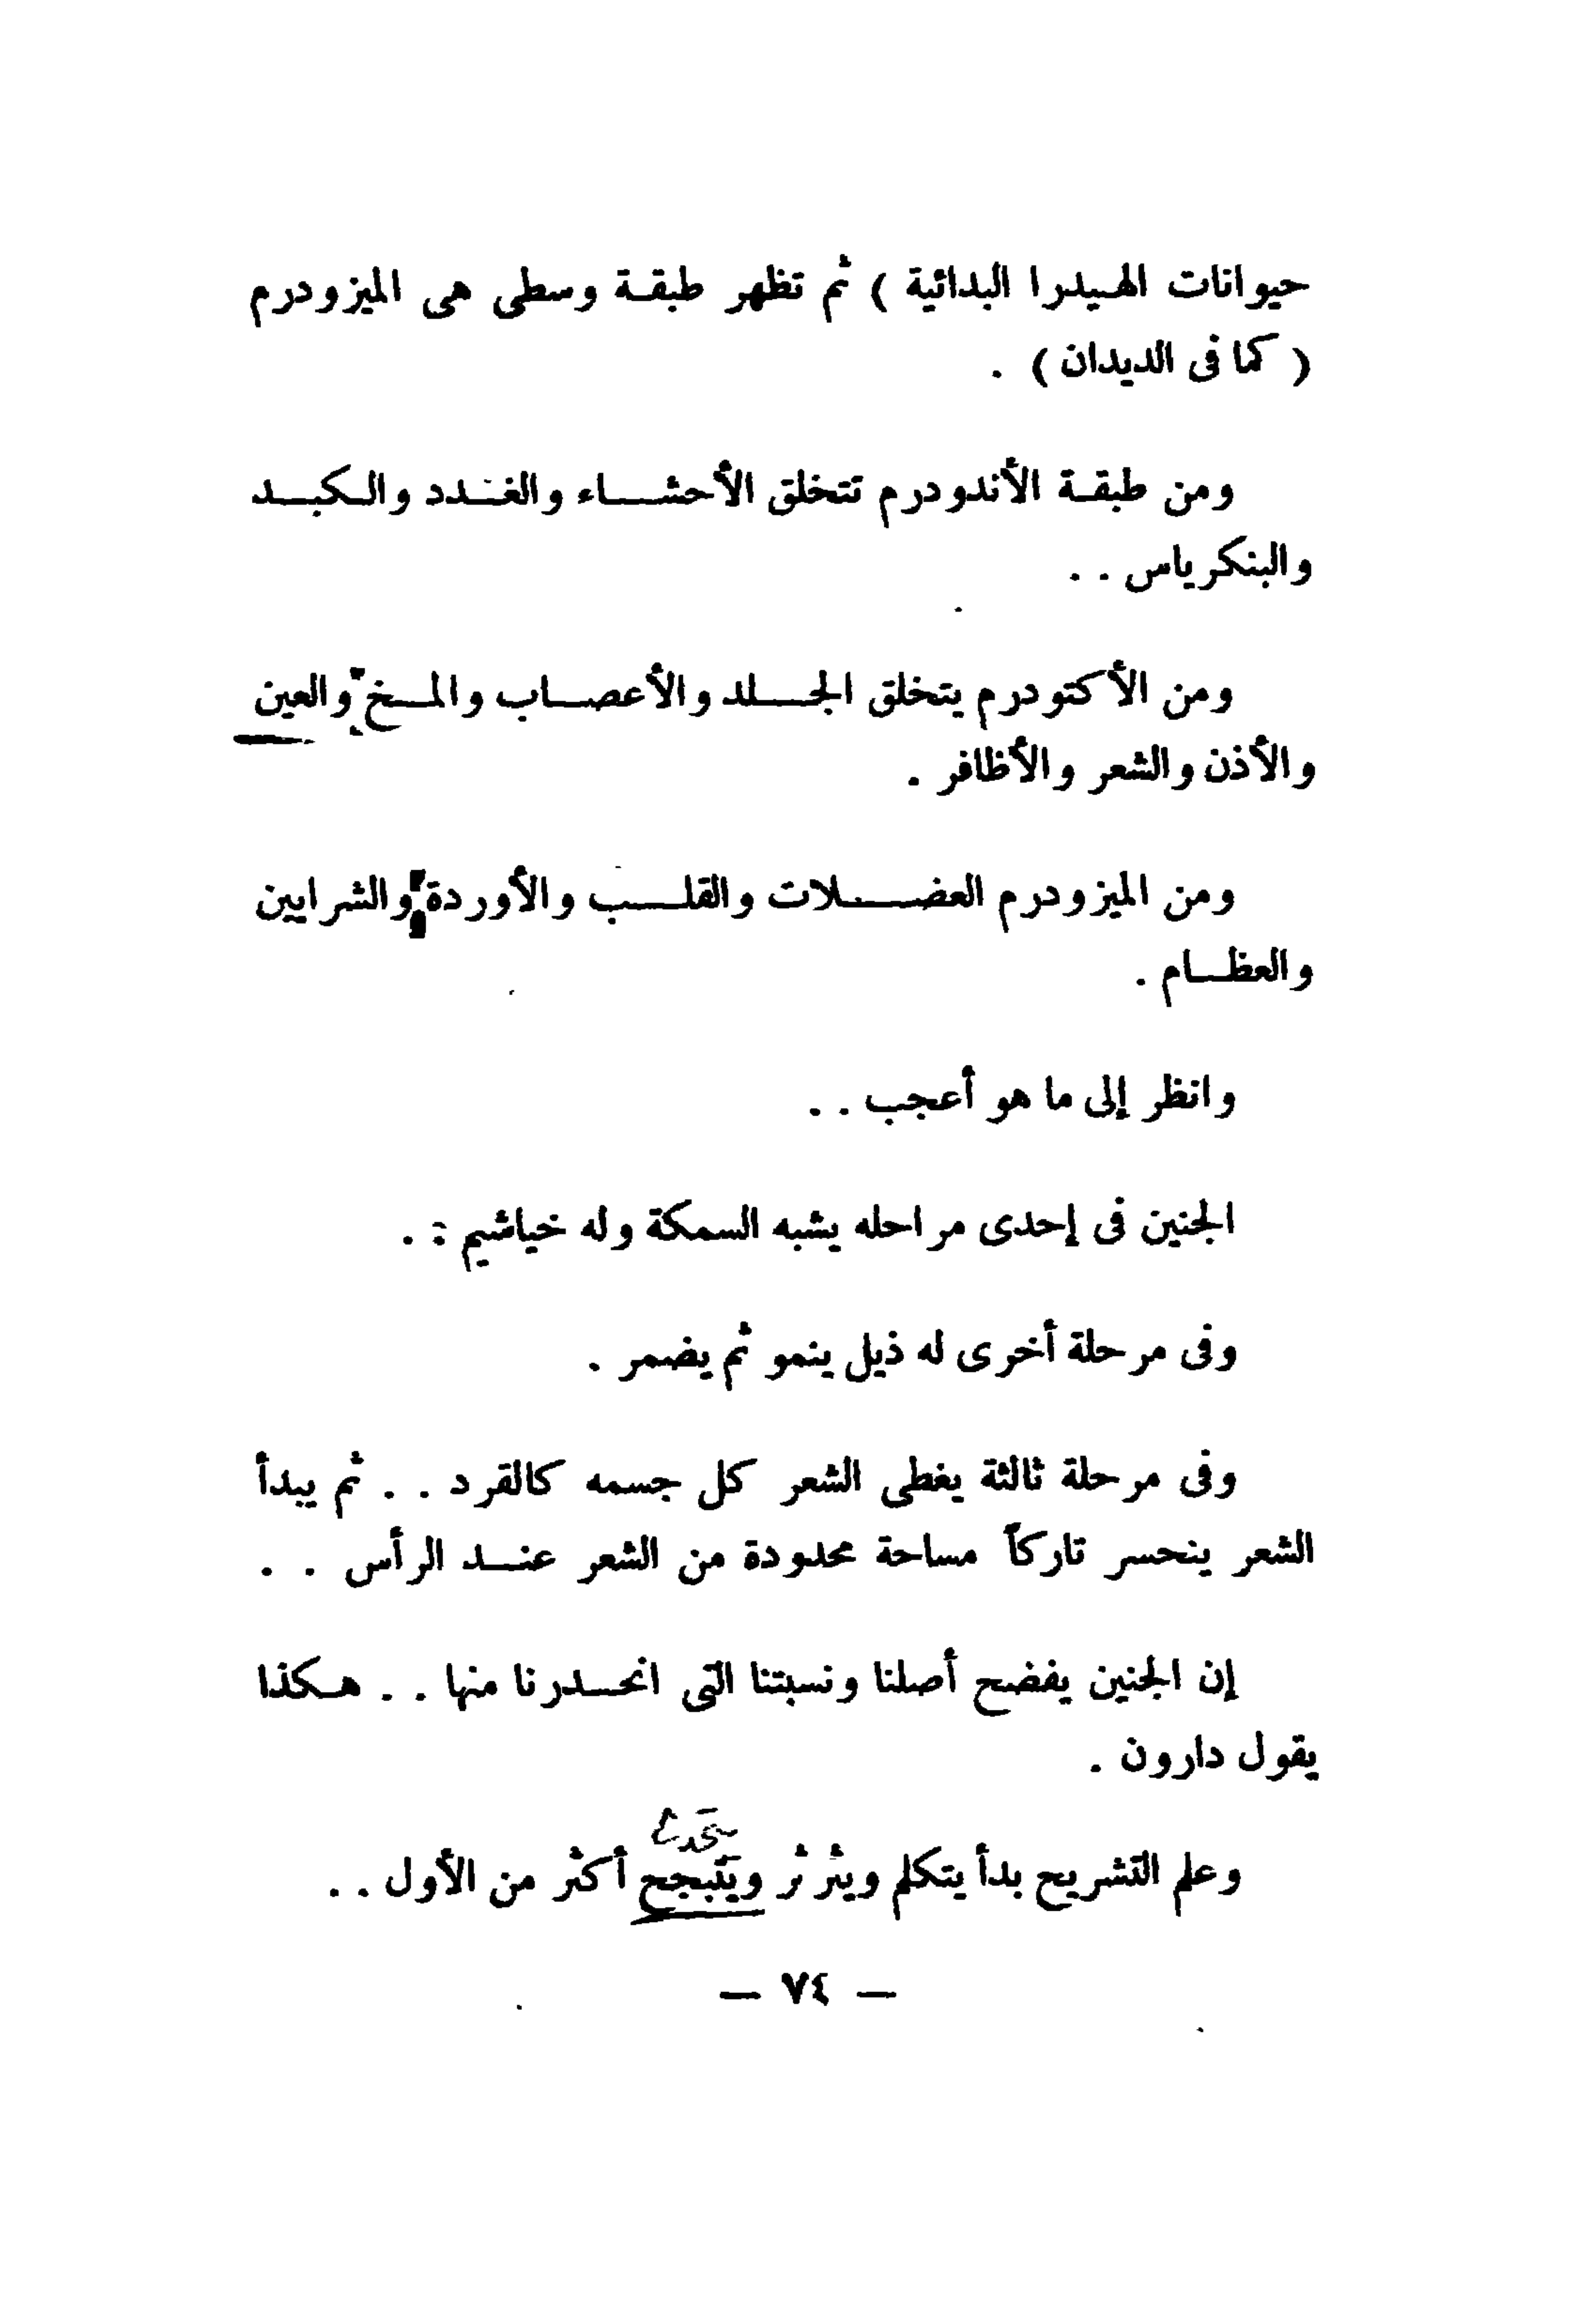 حيوانات الهيدرا البدائية ) ثم تظهر طبقة وسطى هى الميزودرم
( كما فى الديدان ) .
ومن طبقة الأندودرم تتخلق الأحشاء والغدد والكبد
والبنكرياس . .
ومن الأكتودرم يتخلق الجلد والأعصاب والمخ والعين
والأذن والشعر والأظافر .
ومن الميزودرم العضلات والقلب والأوردة والشرايين
والعظام .
وانظر إلى ما هو أعجب . .
الجنين فى إحدى مراحله يشبه السمكة وله خياشيم . .
وفى مرحلة أخرى له ذيل ينمو ثم يضمر .
وفى مرحلة ثالثة يغطى الشعر كل جسمه كالقرد . . ثم يبدأ
الشعر ينحسر تاركاً مساحة محدودة من الشعر عند الرأس . .
إن الجنين يفضح أصلنا ونسبتنا التى انحدرنا منها . . هكذا
يقول دارون .
وعلم التشريح بدأ يتكلم ويثرثر ويتبجح أكثر من الأول . .
— ٧٤ —